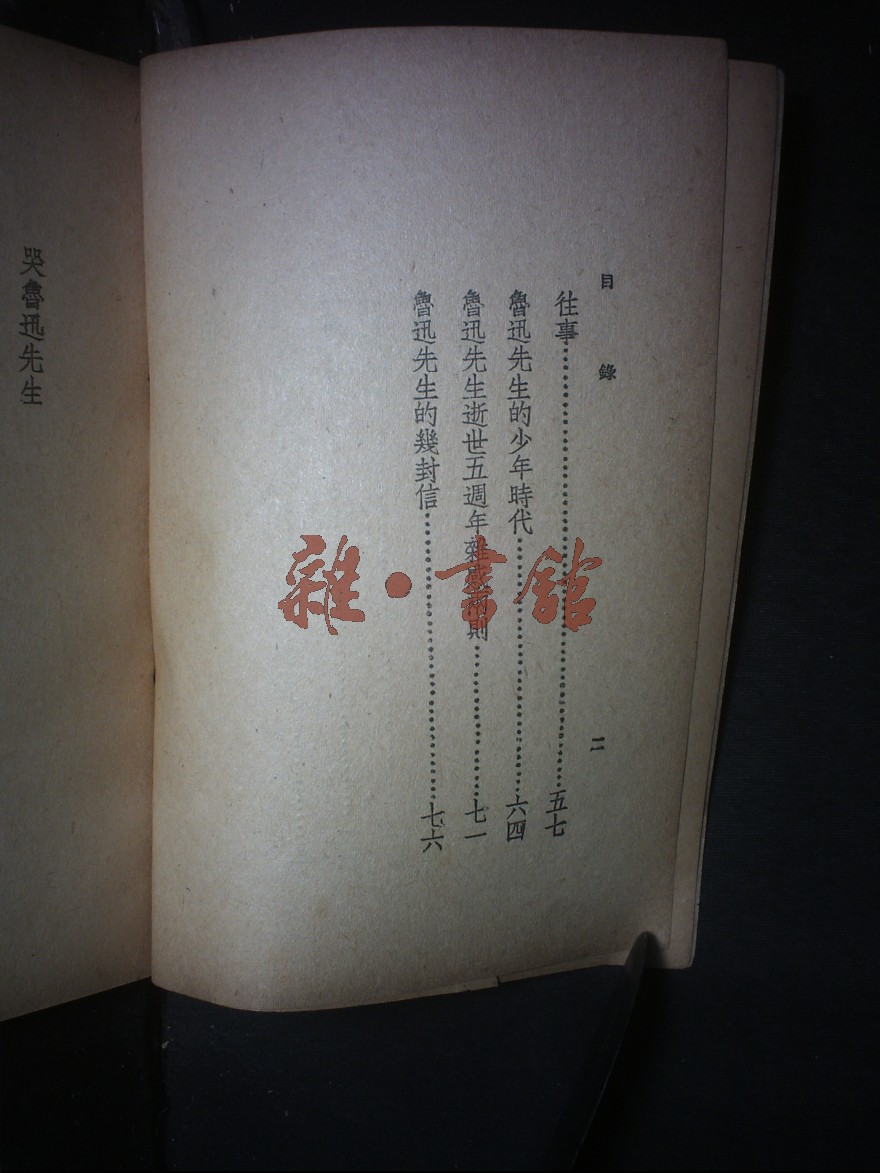 目錄
二
往事……五七
魯迅先生的少年時代……六四
魯迅先生逝世五週年雜感兩則……七一
魯迅先生的幾封信……七六
哭魯迅先生
雜·書館